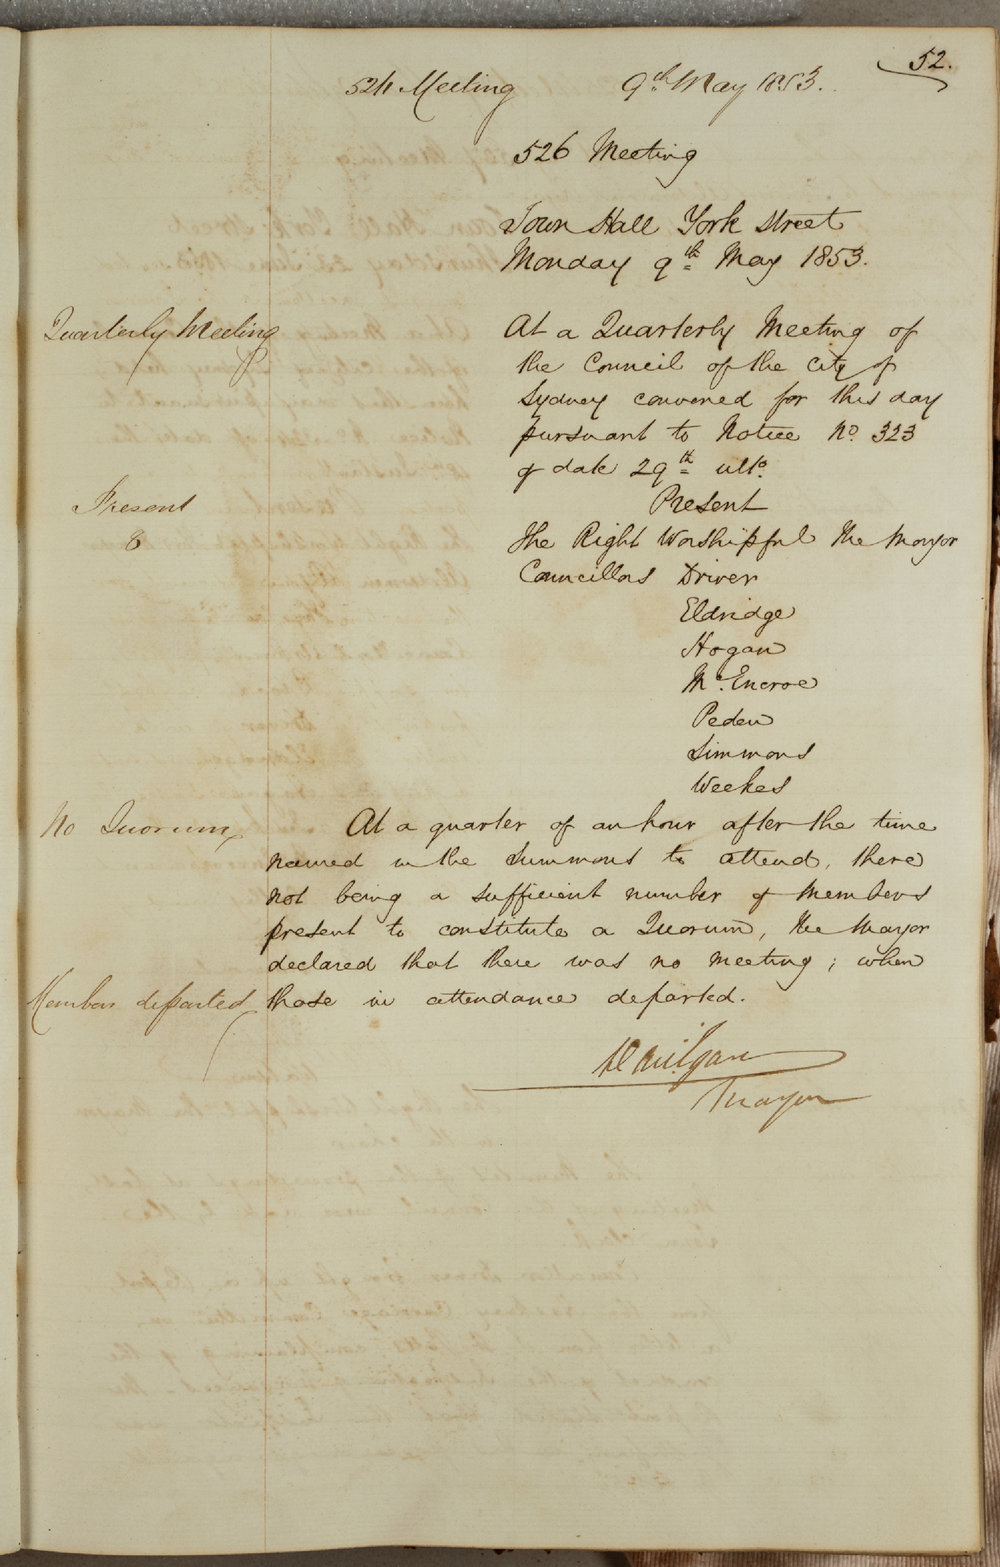 52.
526 Meeting 9th May 1853.
526 Meeting
Town Hall York Street
Monday 9th May 1853.
Quarterly Meeting
At a Quarterly Meeting of
the Council of the City of
Sydney convened for this day
pursuant to Notice No. 323
of date 29th ulto.
Present
Present
8
The Right Worshipful The Mayor
Councillors Driver
Eldridge
Hogan
McEncroe
Peden
Simmons
Weekes
No Quorum
At a quarter of an hour after the time
named in the Summons to attend, there
not being a sufficient number of Members
present to constitute a Quorum, the Mayor
declared that there was no meeting; when
Members departed
those in attendance departed.
Mayor